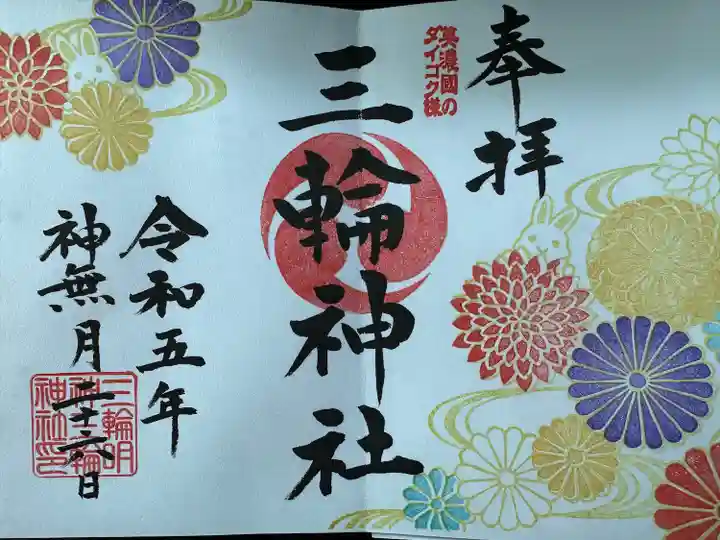 奉拝
美濃國の
ダイコク様
三輪神社
令和五年
神無月二十六日
三輪明
神輪
神社印